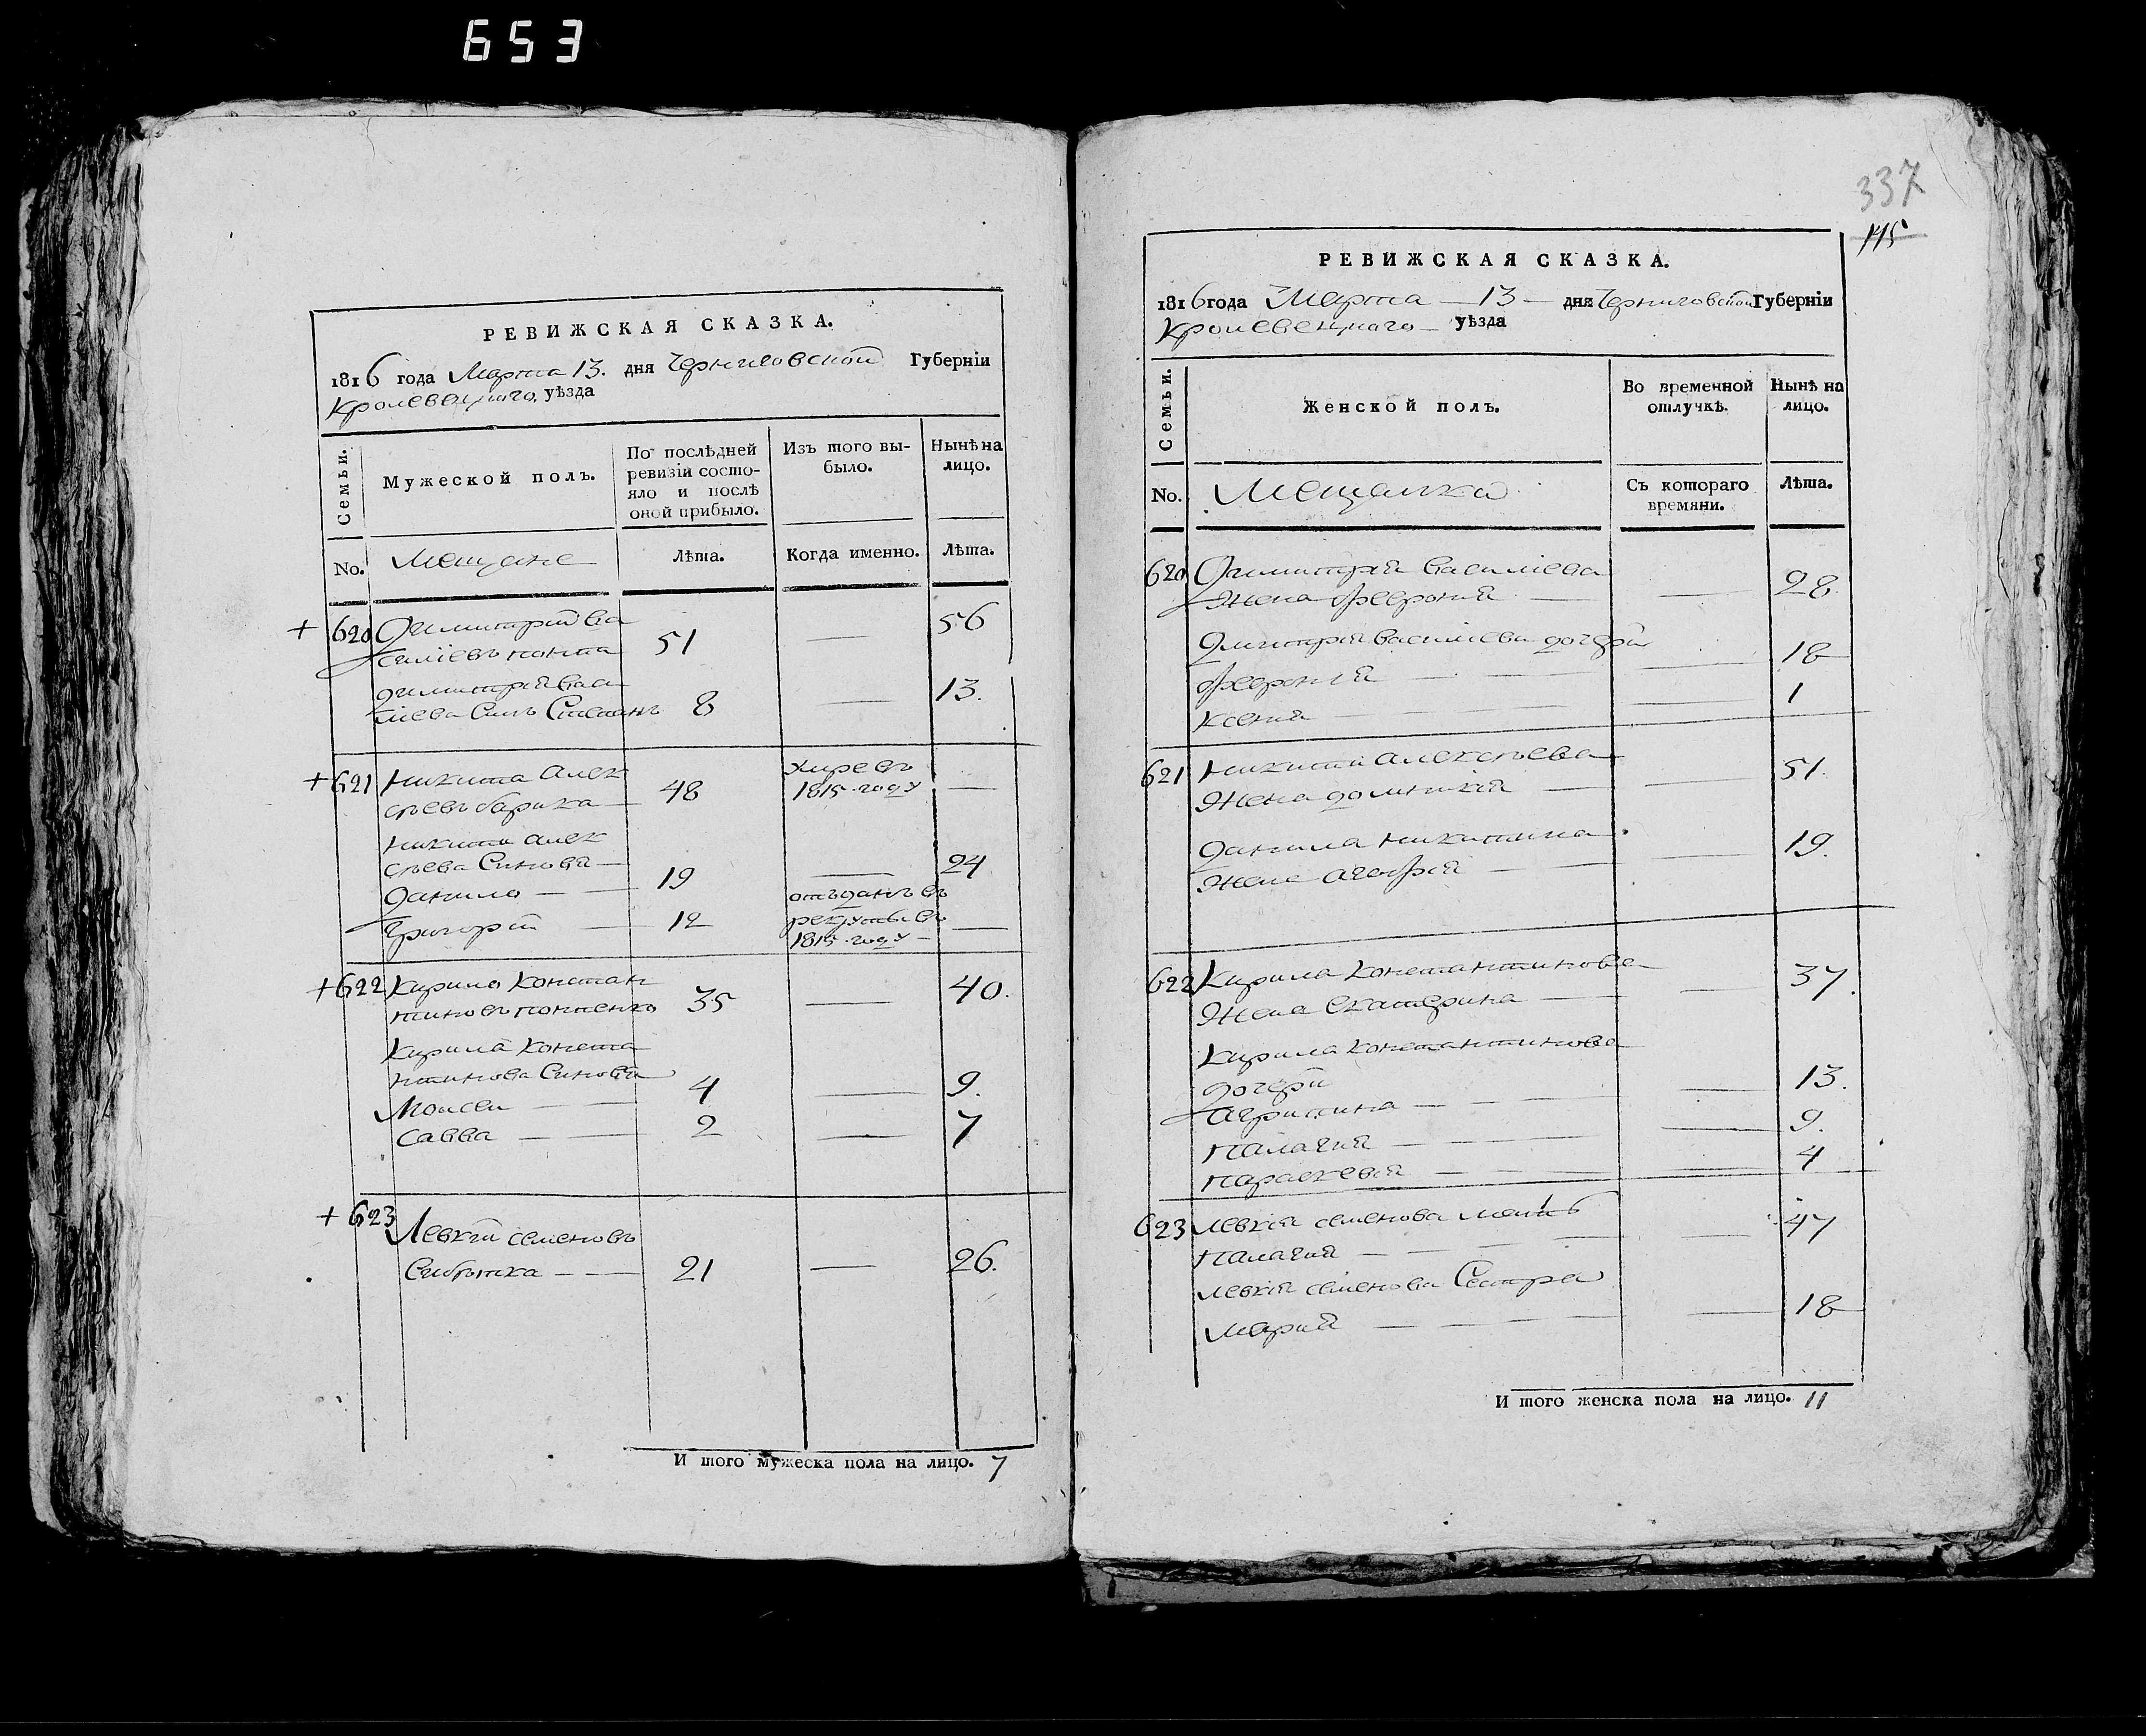 653
РЕВИЖСКАЯ СКАЗКА.
1816 года Марта 13. дня Черниговской Губерніи
Кролевецкаго уѣзда
Семьи.
Мужеской полъ.
По послѣдней ревизіи состояло и послѣ оной прибыло.
Изъ того выбыло.
Нынѣ на лицо.
No.
Мещане
Лѣта.
Когда именно.
Лѣта.
+ 620 Димитрій Ва
силіевъ 51 — 56
Димитрія Васи
лиева Синъ Степанъ 8 — 13.
+ 621 Никита Алек
сѣевъ 48 умре въ 1815 году —
Никити Алек
сѣева Синовя
Данило — 19 — 24
Григорій — 12 отъданъ въ рекруты въ 1815 году —
+ 622 Кирило Констан
тиновъ 35 — 40.
Кирила Конста
нтинова Синовя
Моисей — 4 — 9.
Савва — 2 — 7
+ 623 Левкій Семеновъ
21 — 26.
И того мужеска пола на лицо. 7
337
145
РЕВИЖСКАЯ СКАЗКА.
1816 года Марта — 13 — дня Черниговской Губерніи
Кролевецкаго — уѣзда
Семьи.
Женской полъ.
Во временной отлучкѣ.
Нынѣ на лицо.
No.
Мещанки
Съ котораго времяни.
Лѣта.
620 Димитрія Василіева
Жена Феєронія — — 28
Дмитрія Василиева дочери
Феєронія — — 18
Ксения — — 1
621 Никити Алексѣева
Жена Домникія — — 51.
Данила Никитина
Жена Агафія — — 19.
622 Кирила Константинова
Жена Екатерина — — 37.
Кирила Константинова
дочери
Агрипина — — 13.
Палагия — — 9.
Параскевія — — 4
623 Левкія Семенова мать
Палагия — — 47
Левкія Семенова Сестра
Мария — — 18
И того женска пола на лицо. 11